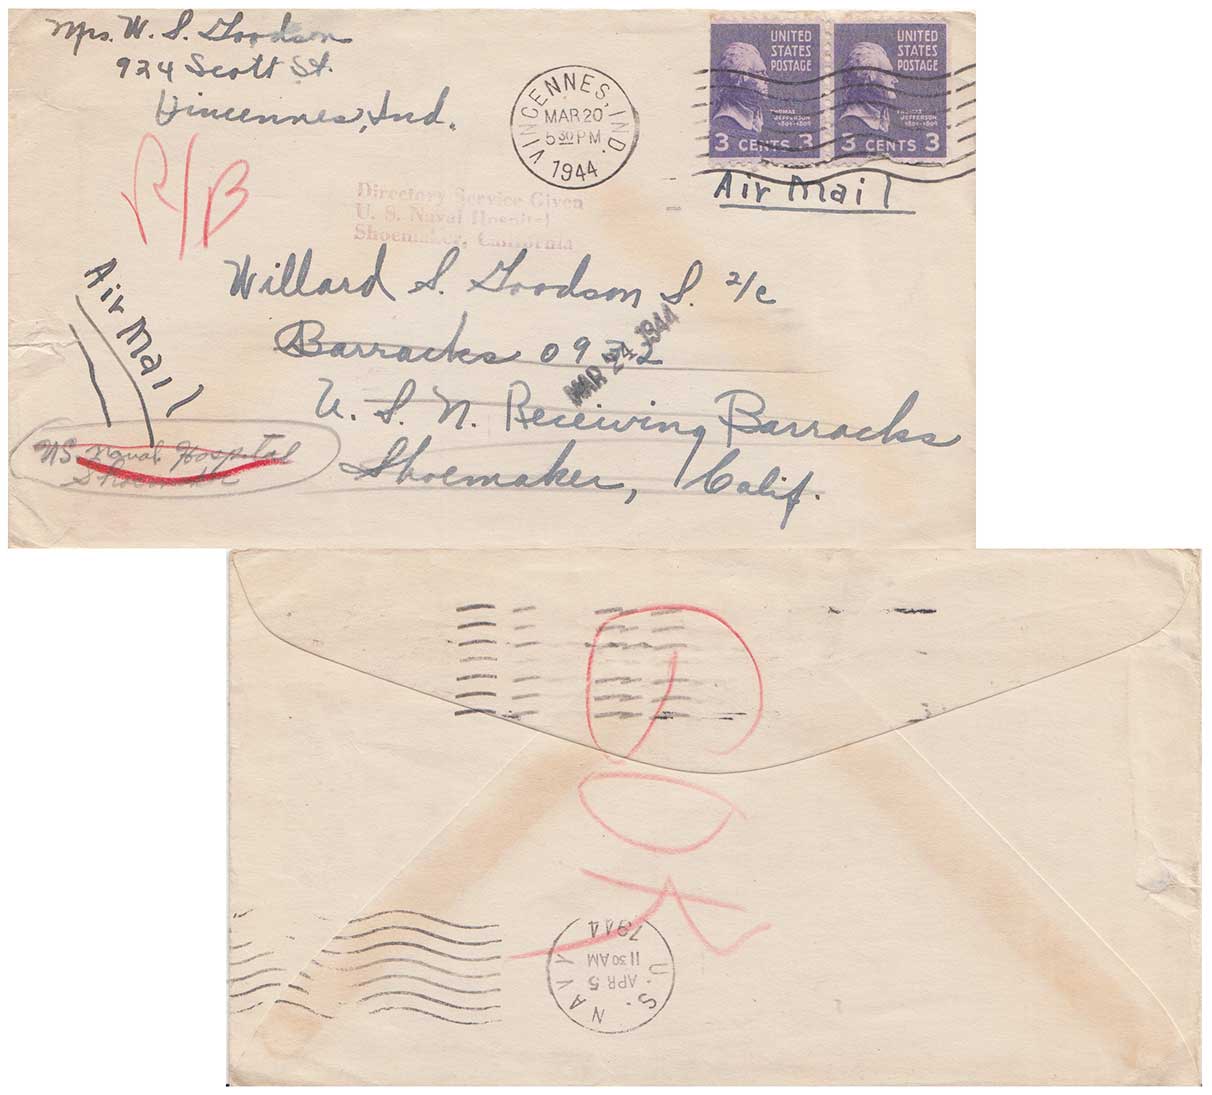 Mrs. W. S. Goodson
924 Scott St.
Vincennes, Ind.
VINCENNES, IND.
MAR 20
5 30 PM
1944
UNITED
STATES
POSTAGE
THOMAS
JEFFERSON
1801-1809
3 CENTS 3
UNITED
STATES
POSTAGE
THOMAS
JEFFERSON
1801-1809
3 CENTS 3
Air Mail
R/B
Directory Service Given
U. S. Naval Hospital
Shoemaker, California
Air Mail
Willard S. Goodson S. 2/c
Barracks 0932
MAR 24 1944
U. S. N. Receiving Barracks
Shoemaker, Calif.
US Naval Hospital
U. S. NAVY
APR 5
11 30 AM
1944